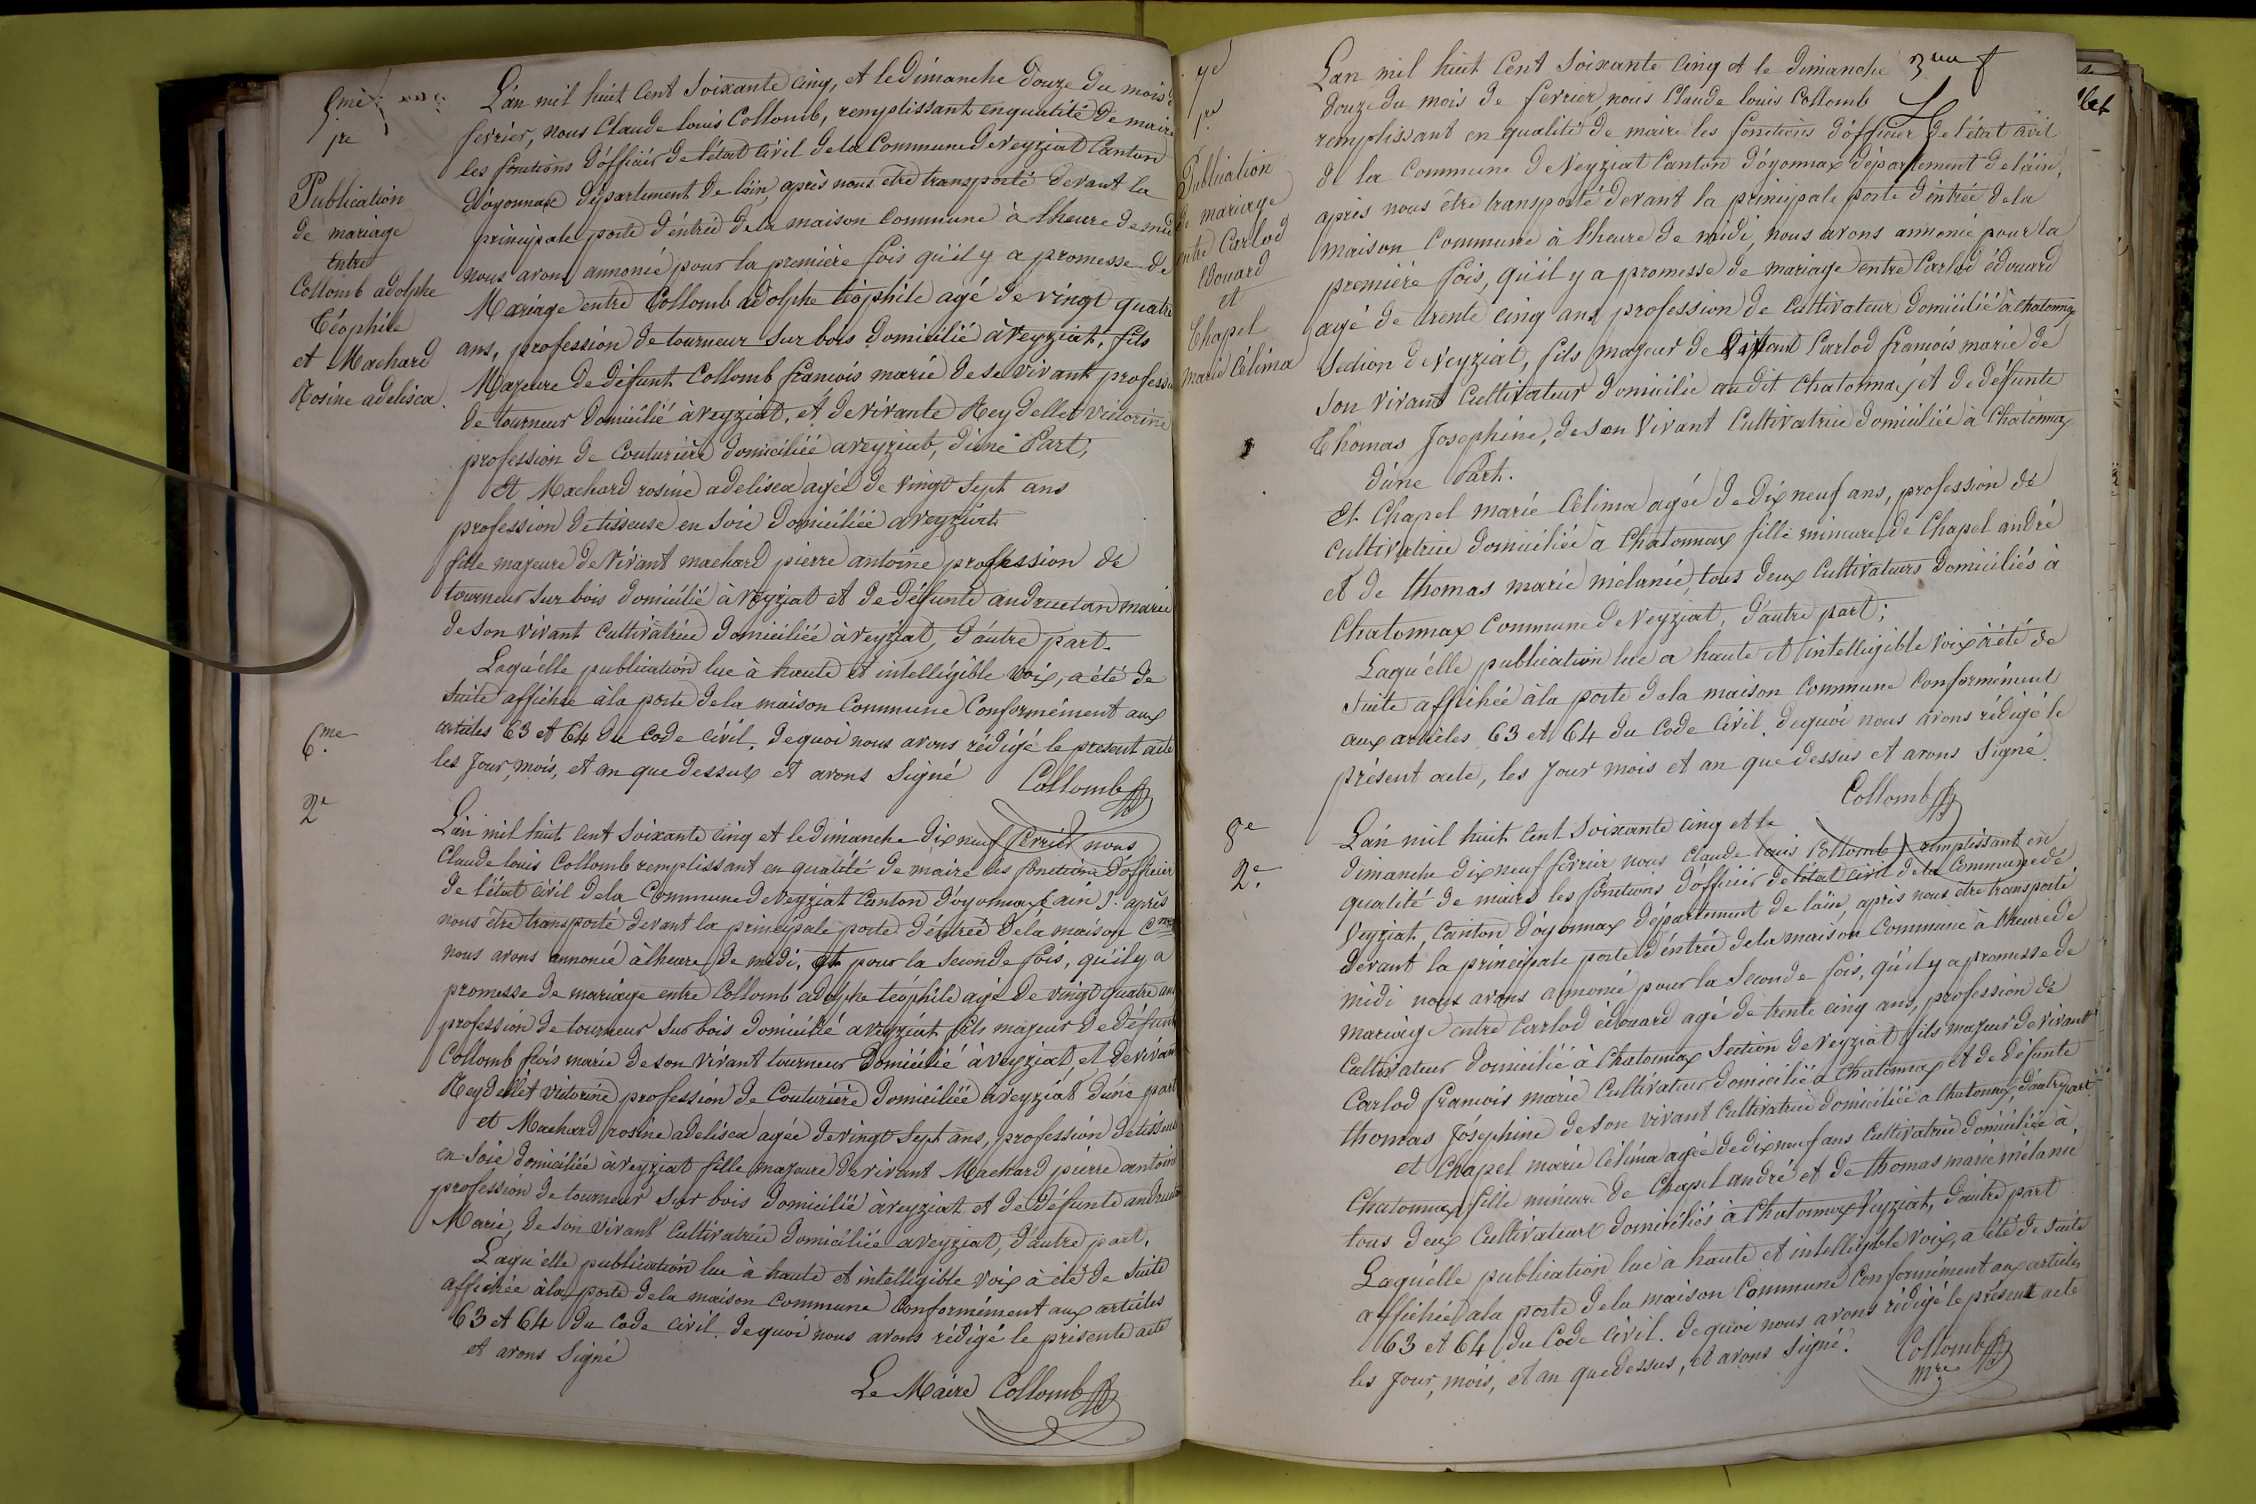 5me
1re
Publication
de mariage
entre
Collomb adolphe
téophile
et Machard
Rosine adelisca
L'an mil huit Cent Soixante Cinq, et le Dimanche Douze du mois
fevrier, nous Claude louis Collomb, remplissant enqualité de maire
les fonctions d'officier de l'état Civil de la Commune de Veyziat Canton
d'óyonnax Département de l'ain, après nous être transporté devant la
principale porte d'éntrée de la maison Commune à l'heure de midi
nous avons annoncé pour la première fois qu'il y a promesse de
Mariage entre Collomb adolphe téophile agé de vingt quatre
ans, profession de tourneur sur bois domicilié à Veyziat, fils
Majeure de défunt Collomb francois marie de se vivant profession
de tourneur domicilié à veyziat, et de vivante Reydellet victorine
profession de Couturière domiciliée aveyziat, d'úne Part;
Et Machard rosine adelisca agée de vingt Sept ans
profession de tisseuse en soie domiciliée aveyziat
fille majeure de vivant machard pierre antoine profession de
tourneur sur bois domicilié à veyziat et de défunte andruetan marie
de son vivant Cultivatrice domiciliée à veyziat, d'autre part.
Laqu'elle publication lue à haute et intelligible voix, a été de
suite affichée à la porte de la maison Commune Conformément aux
articles 63 et 64 du Code Civil, de quoi nous avons rédigé le présent acte
les Jour, mois, et an que dessus et avons Signé
Collomb
6me
2e
L'an mil huit cent soixante cinq et le dimanche dix neuf février nous
Claude louis Collomb remplissant en qualité de maire les fonctions d'officier
de l'état civil de la Commune de Veyziat Canton d'óyonnax (ain), après
nous être transporté devant la principale porte d'éntrée de la maison Cmne
nous avons annoncé à l'heure de midi, et pour la seconde fois, qu'il y a
promesse de mariage entre Collomb adolphe teophile agé de vingt quatre ans
profession de tourneur sur bois domicilié aveyziat fils majeur de défunt
Collomb frois marie de son vivant tourneur domicilié à veyziat, et de vivante
Reydellet victorine profession de Couturière domiciliée à veyziat d'úne part
et Machard rosine adelisca agée de vingt sept ans, profession de tisseuse
en soie domiciliée à veyziat fille majeure de vivant Machard pierre antoine
profession de tourneur sur bois domicilié à veyziat et de défunte andruetan
Marie, de son vivant Cultivatrice domiciliée aveyziat, d'autre part,
Laqu'elle publication lue à haute et intelligible voix à été de suite
affichée à la porte de la maison Commune Conformément aux articles
63 et 64 du Code Civil, de quoi nous avons rédigé le présente acte
et avons Signé
Le Maire Collomb
7e
1re
Publication
de mariage
entre Carlod
édouard
et
Chapel
marie Célima
3me f
L'an mil huit Cent Soixante Cinq et le dimanche
douze du mois de fevrier, nous Claude louis Collomb
remplissant en qualité de maire les fonctions d'officier de l'état civil
de la Commune de Veyziat Canton d'óyonnax département de l'ain,
après nous être transporté devant la principale porte d'entrée de la
maison Commune à l'heure de midi, nous avons annoncé pour la
première fois, qu'il y a promesse de mariage entre Carlod édouard
agé de trente cinq ans profession de Cultivateur domicilié à Chatonnax
Section de Veyziat, fils majeur de défunt Carlod francois marie de
son vivant Cultivateur domicilié audit Chatonnax, et de défunte
Thomas Josephine, de son Vivant Cultivatrice domiciliée à Chatonnax
d'úne Part.
Et Chapel marie Célima agée de Dix neuf ans, profession de
Cultivatrice domiciliée à Chatonnax fille mineure de Chapel andré
et de thomas marie mélanie, tous deux Cultivateurs domiciliés à
Chatonnax Commune de Veyziat, d'autre part;
Laqu'elle publication lue a haute et intelligible voix à été de
suite affichée à la porte de la maison Commune Conformément
aux articles 63 et 64 du Code Civil, dequoi nous avons rédigé le
présent acte, les Jour mois et an que dessus et avons Signé.
Collomb
8e
2e
L'an mil huit cent Soixante Cinq et le
dimanche dix neuf février nous Claude louis Collomb remplissant en
qualité de maire les fonctions d'officier de l'état civil de la Commune de
Veyziat, Canton d'óyonnax département de l'ain, après nous être transporté
devant la principale porte d'éntrée de la maison Commune à l'heure de
midi nous avons annoncé pour la Seconde fois, qu'il y a promesse de
mariage entre Carlod édouard agé de trente cinq ans, profession de
Cultivateur domicilié à Chatonnax Section de Veyziat fils majeur de vivant
Carlod francois marie Cultivateur domicilié à Chatonnax et de défunte
thomas Joséphine de son vivant Cultivatrice domiciliée a Chatonnax, d'autre part
et Chapel marie Célima agée de dix neuf ans Cultivatrice domiciliée à
Chatonnax fille mineure de Chapel andré et de thomas marie mélanie
tous deux Cultivateurs domiciliés à Chatonnax Veyziat, d'autre part
Laqu'elle publication lue à haute et intelligible voix, a été de suite
affichée a la porte de la maison Commune Conformément aux articles
63 et 64 du Code Civil. de quoi nous avons rédigé le présent acte
les Jour, mois, et an que dessus, et avons Signé.
Collomb
mre